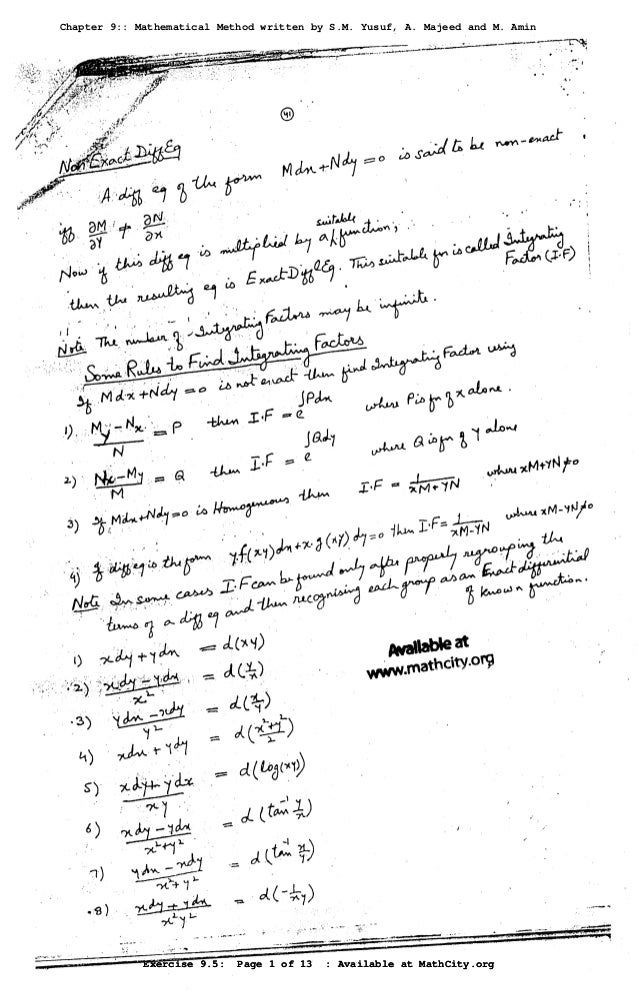 Chapter 9:: Mathematical Method written by S.M. Yusuf, A. Majeed and M. Amin
41
Non Exact Diff Eq
A diff eq of the form Mdx+Ndy=0 is said to be non-exact
iff ∂M/∂y ≠ ∂N/∂x
Now if this diff eq is multiplied by a suitable function,
then the resulting eq is Exact Diff Eq. This suitable fn is called Integrating Factor (I.F)
Note The number of Integrating Factors may be infinite.
Some Rules to Find Integrating Factors
If Mdx+Ndy=0 is not exact then find Integrating Factor using
1) (My-Nx)/N = P then I.F = e^∫Pdx where P is fn of x alone.
2) (Nx-My)/M = Q then I.F = e^∫Qdy where Q is fn of y alone
3) If Mdx+Ndy=0 is Homogeneous then I.F = 1/(xM+yN) where xM+yN≠0
4) If diff eq is the form yf(xy)dx+x.g(xy)dy=0 then I.F= 1/(xM-yN) where xM-yN≠0
Note In some cases I.F can be found only after properly regrouping the
terms of a diff eq and then recognising each group as an Exact differential
of known function.
1) xdy+ydx = d(xy)
2) (xdy-ydx)/x² = d(y/x)
3) (ydx-xdy)/y² = d(x/y)
4) xdx+ydy = d((x²+y²)/2)
5) (xdy+ydx)/xy = d(log(xy))
6) (xdy-ydx)/(x²+y²) = d(tan⁻¹ y/x)
7) (ydx-xdy)/(x²+y²) = d(tan⁻¹ x/y)
8) (xdy+ydx)/x²y² = d(-1/xy)
Available at
www.mathcity.org
Exercise 9.5: Page 1 of 13 : Available at MathCity.org